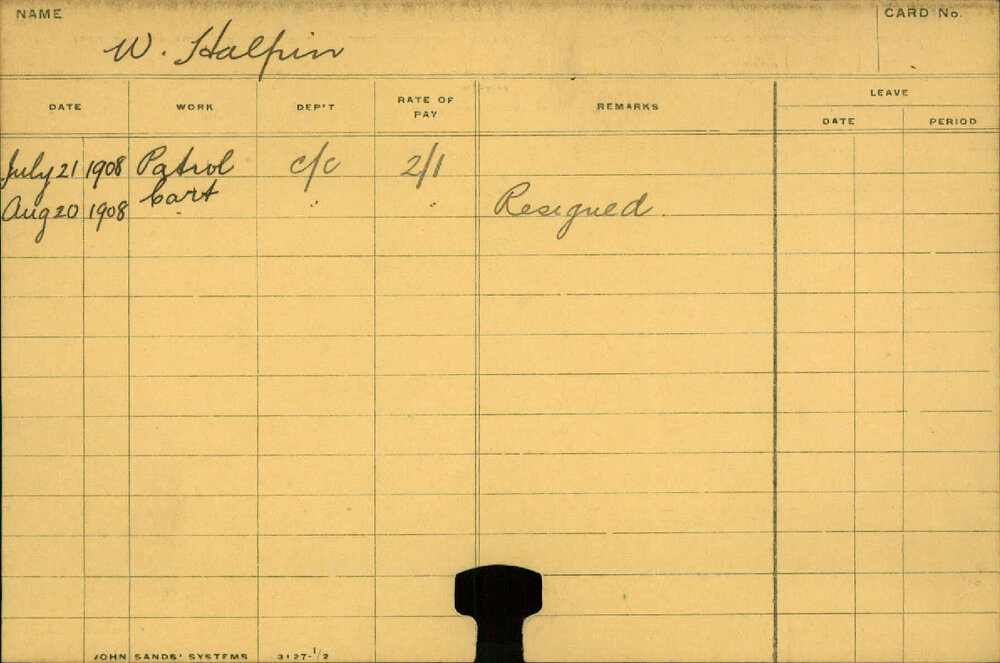 NAME CARD No.
W. Halpin
DATE WORK DEP'T RATE OF PAY REMARKS LEAVE
DATE PERIOD
July 21 1908 Patrol c/c 2/1
Aug 20 1908 Cart " " Resigned.
JOHN SANDS' SYSTEMS 3127-1/2